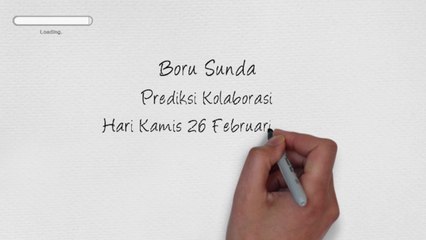 Loading.
Boru Sunda
Prediksi Kolaborasi
Hari Kamis 26 Februari